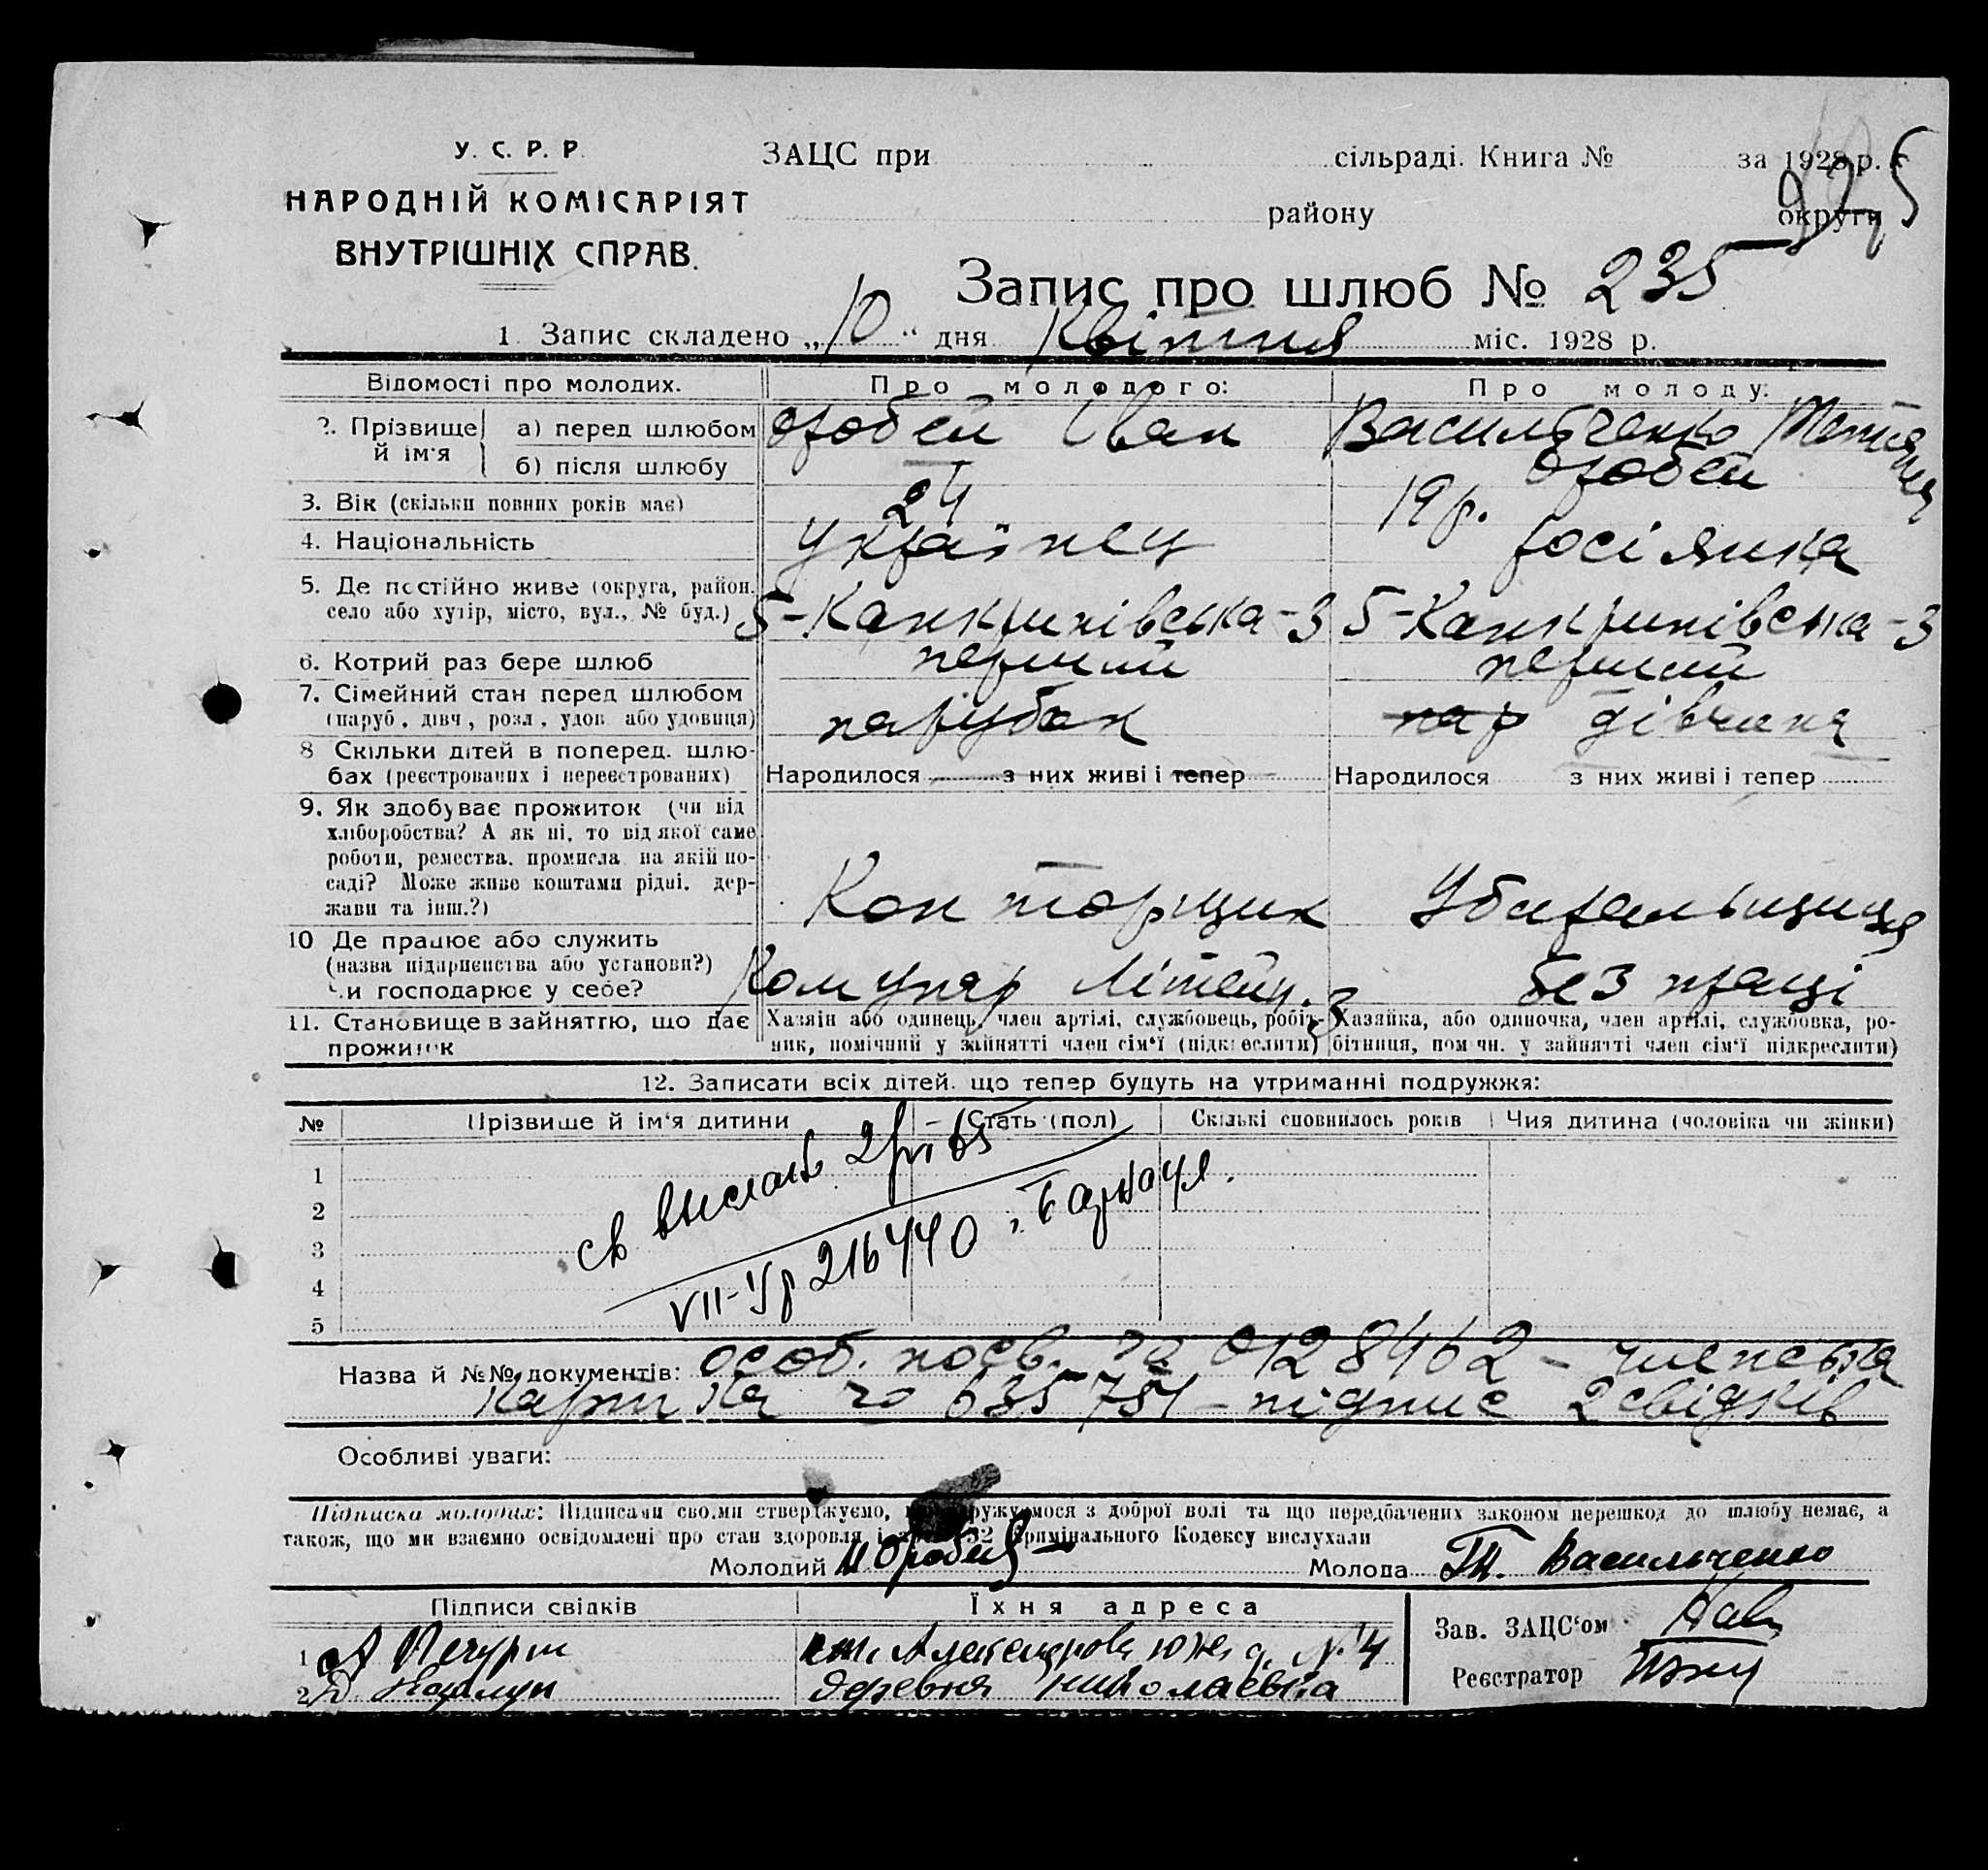 У. С. Р. Р.
НАРОДНІЙ КОМІСАРІЯТ
ВНУТРІШНІХ СПРАВ.
ЗАЦС при сільраді. Книга № за 1928 р.
району округи
925
Запис про шлюб № 235
1. Запис складено „10“ дня Квітня міс. 1928 р.
Відомості про молодих. Про молодого: Про молоду:
2. Прізвище й ім'я
а) перед шлюбом Оробей Іван Васильченко Тетяна
б) після шлюбу — Оробей
3. Вік (скільки повних років має) 24 19 р.
4. Національність Українец росіянка
5. Де постійно живе (округа, район.
село або хутір, місто, вул., № буд.) 5-Канкринівська-3 5-Канкринівська-3
6. Котрий раз бере шлюб перший перший
7. Сімейний стан перед шлюбом
(паруб., дівч., розл., удов. або удовиця) парубок пар дівчина
8 Скільки дітей в поперед. шлю-
бах (реєстрованих і нереєстрованих) Народилося з них живі і тепер Народилося з них живі і тепер
9. Як здобуває прожиток (чи від
хліборобства? А як ні, то від якої саме
роботи, ремества, промисла на якій по-
саді? Може живе коштами рідні, дер-
жави та інш.?) Конторщик Убиральщиця
10 Де працює або служить
(назва підприємства або установи?)
Чи господарює у себе? Комунар без праці
11. Становище в зайняттю, що дає
прожиток
Хазяїн або одинець, член артілі, службовець, робіт-
ник, помічний у зайнятті член сім'ї (підкреслити)
Хазяйка, або одиночка, член артілі, службовка, ро-
бітниця, помічн. у зайнятті член сім'ї підкреслити)
12. Записати всіх дітей, що тепер будуть на утриманні подружжя:
№ Прізвище й ім'я дитини Стать (пол) Скількі сповнилось років Чия дитина (чоловіка чи жінки)
1
2
3
4
5
св выслано
216440 Барнаул.
Назва й №№ документів: особ. посв. № 0128462 – членська
картка № 635751 – підпис 2 свідків
Особливі уваги:
Підписка молодих: Підписами своїми стверджуємо, з доброї волі та що передбачених законом перешкод до шлюбу немає, а
також, що ми взаємно освідомлені про стан здоровля і Кримінального Кодексу вислухали
Молодий И Оробей Молода Т. Васильченко
Підписи свідків Їхня адреса
1 А Печура №4
2 деревня Николаевка
Зав. ЗАЦС'ом
Реєстратор